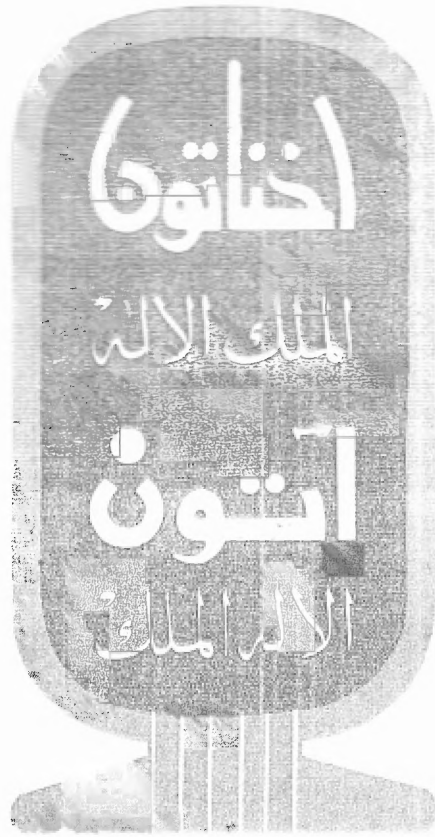 اخناتون
الملك الإله
آتون
الإله الملك